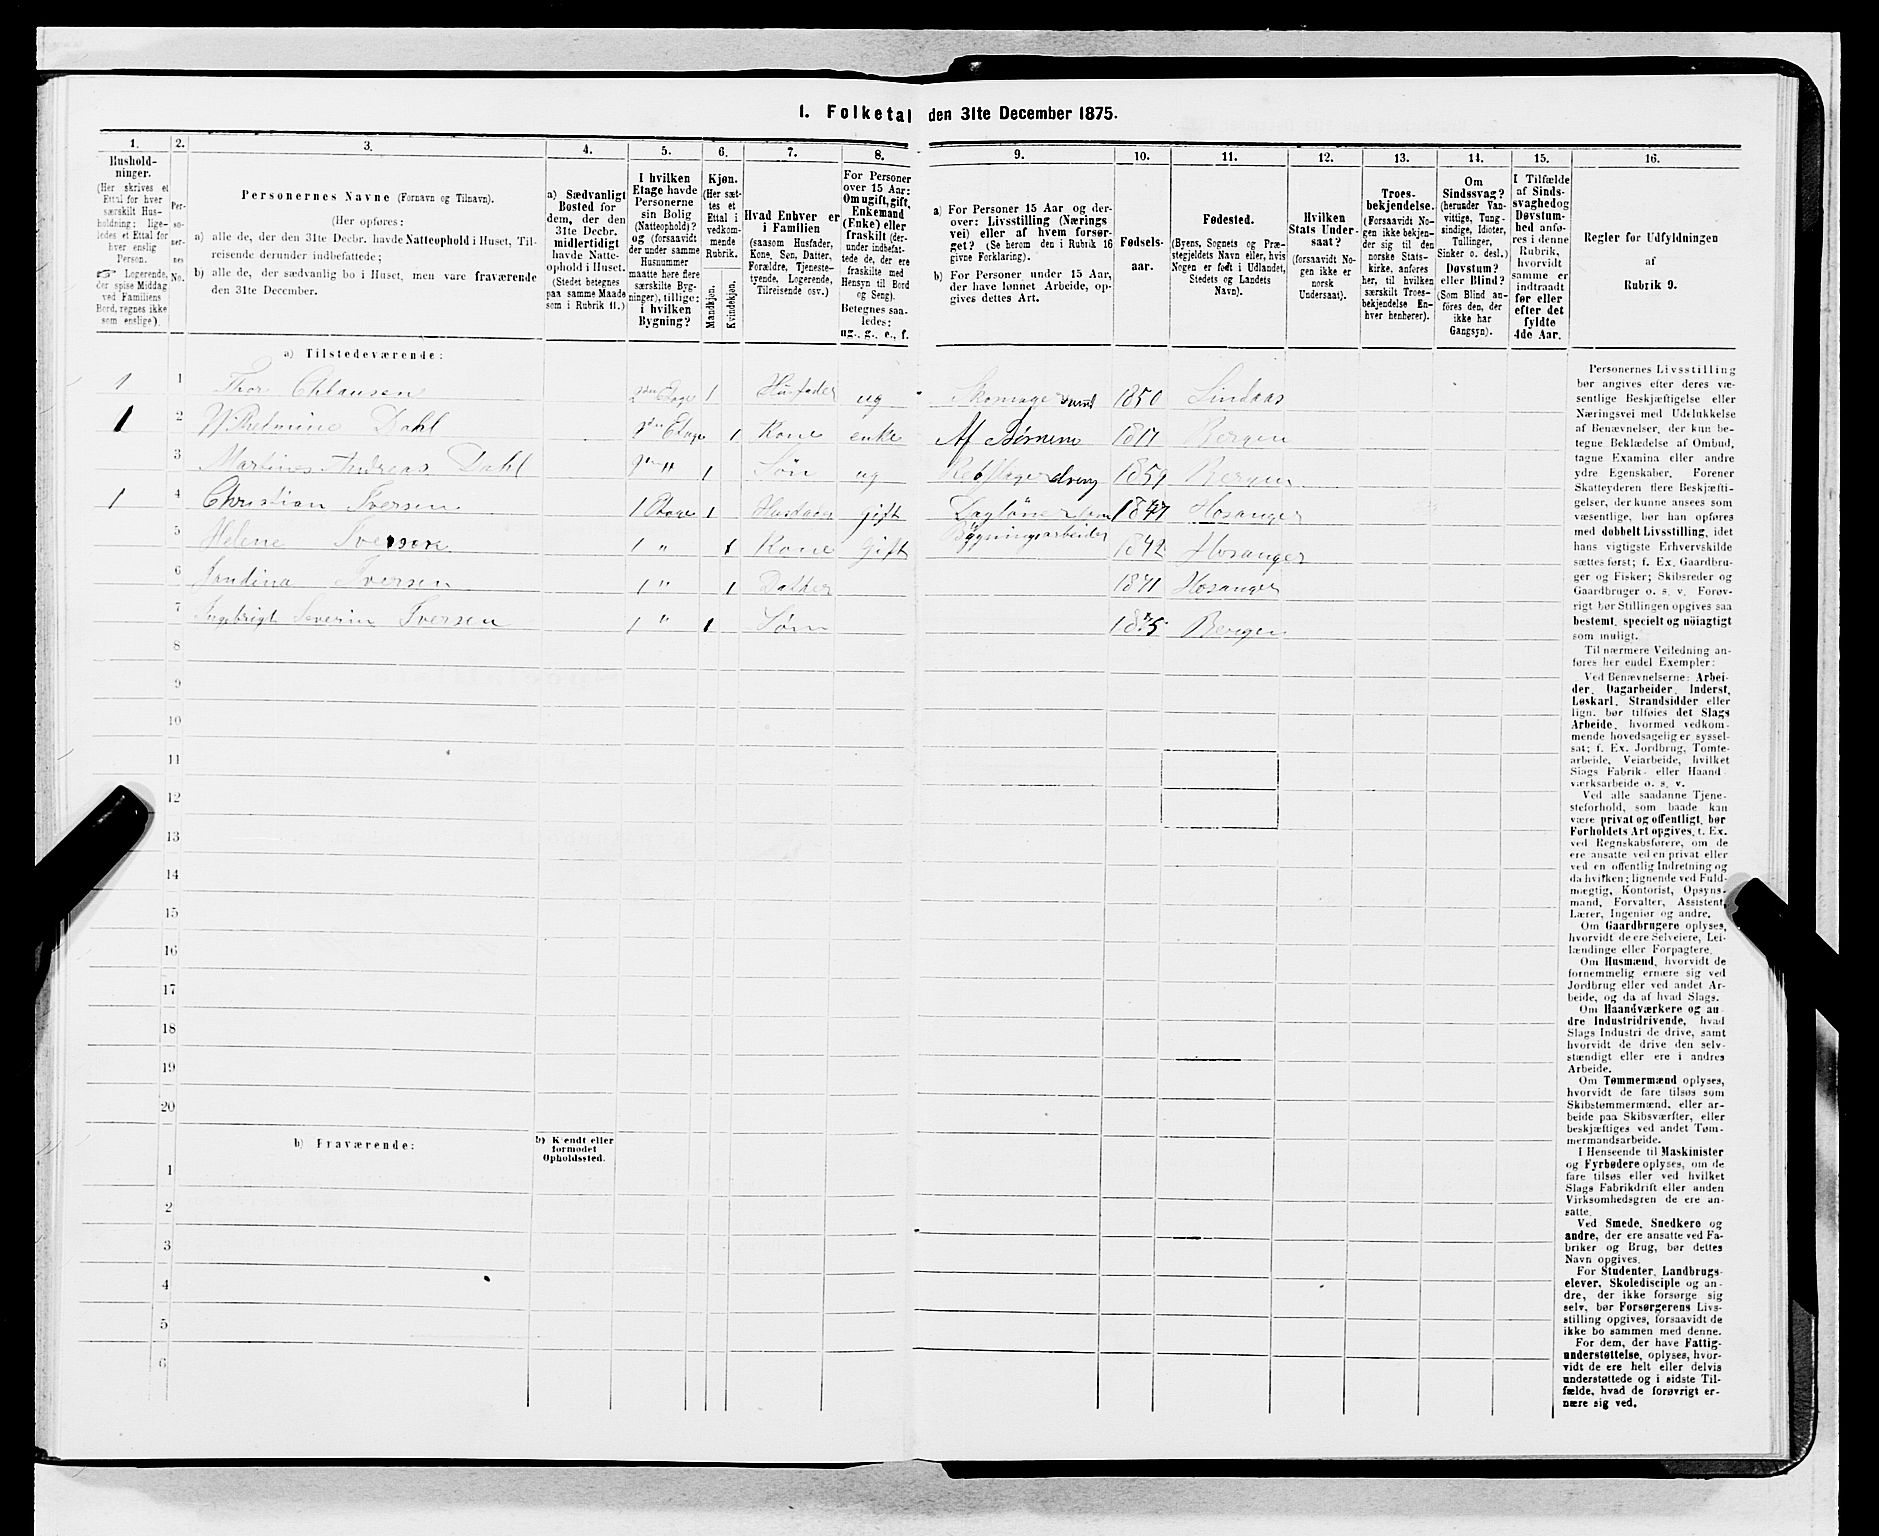 1. Folketal den 31te December 1875.
1. 2. 3. 4. 5. 6. 7. 8. 9. 10. 11. 12. 13. 14. 15. 16.
Hushold-
ninger.
(Her skrives et
Ettal for hver
særskilt Hus-
holdning; lige-
ledes et Ettal for
hver enslig
Person.
☞ Logerende,
der spise Middag
ved Familiens
Bord, regnes ikke
som enslige).
Per-
so-
ner-
nes
No.
Personernes Navne (Fornavn og Tilnavn).
(Her opføres:
a) alle de, der den 31te Decbr. havde Natteophold i Huset, Til-
reisende derunder indbefattede;
b) alle de, der sædvanlig bo i Huset, men vare fraværende
den 31te December.
a) Sædvanligt
Bosted for
dem, der den
31te Decbr.
midlertidigt
havde Natte-
ophold i Huset.
(Stedet betegnes
paa samme Maade
som i Rubrik 11.)
I hvilken
Etage havde
Personerne
sin Bolig
(Natteophold)?
og (forsaavidt
der under samme
Husnummer
maatte høre flere
særskilte Byg-
ninger), tillige:
i hvilken
Bygning?
Kjøn.
(Her sæt-
tes et
Ettal i
vedkom-
mende
Rubrik.
Mandkjøn.
Kvindekjøn.
Hvad Enhver er
i Familien
(saasom Husfader,
Kone, Søn, Datter,
Forældre, Tjeneste-
tyende, Logerende,
Tilreisende osv.)
For Personer
over 15 Aar:
Om ugift, gift,
Enkemand
(Enke) eller
fraskilt (der-
under indbefat-
tede de, der ere
fraskilte med
Hensyn til Bord
og Seng).
Betegnes saa-
ledes:
ug., g., e., f.
a) For Personer 15 Aar og der-
over: Livsstilling (Nærings
vei) eller af hvem forsør-
get? (Se herom den i Rubrik 16
givne Forklaring).
b) For Personer under 15 Aar,
der have lønnet Arbeide, op-
gives dettes Art.
Fødsels-
aar.
Fødested.
(Byens, Sognets og Præ-
stegjeldets Navn eller, hvis
Nogen er født i Udlandet,
Stedets og Landets
Navn).
Hvilken
Stats Under-
saat?
(forsaavidt No-
gen ikke er
norsk
Undersaat).
Troes-
bekjendelse.
(Forsaavidt No-
gen ikke bekjen-
der sig til den
norske Stats-
kirke, anføres
her, til hvilken
særskilt Troes-
bekjendelse En-
hver henhører).
Om
Sindssvag?
(herunder Van-
vittige, Tung-
sindige, Idioter,
Tullinger,
Sinker o. desl.)
Døvstum?
eller Blind?
(Som Blind an-
føres den, der
ikke har
Gangsyn).
I Tilfælde
af Sinds-
svaghed og
Døvstum-
hed anfø-
res i denne
Rubrik,
hvorvidt
samme er
indtraadt
før eller
efter det
fyldte
4de Aar.
Regler for Udfyldningen
af
Rubrik 9.
a) Tilstedeværende:
1 1 Thor Chlausen 2den Etage 1 Husfader ug Skomager 1850 Lindaas
1 2 Wilhelmine Dahl 2den Etage 1 Kone enke Af Børnene 1817 Bergen
3 Martinus Andreas Dahl 2den " 1 Søn ug Rebslager dreng 1859 Bergen
1 4 Christian Iversen 1 Etage 1 Husfader gift Dagløner som 1847 Hosanger
Bygningsarbeider
5 Helene Iversen 1 " 1 Kone Gift 1842 Hosanger
6 Iversen 1 " 1 Datter 1871 Hosanger
7 Ingebrigt Severin Iversen 1 " 1 Søn 1875 Bergen
8
9
10
11
12
13
14
15
16
17
18
19
20
b) Fraværende:
b) Kjendt eller
formodet
Opholdssted.
1
2
3
4
5
6
Personernes Livsstilling
bør angives efter deres væ-
sentlige Beskjæftigelse eller
Næringsvei med Udelukkelse
af Benævnelser, der kun be-
tegne Beklædelse af Ombud,
tagne Examina eller andre
ydre Egenskaber. Forener
Skatteyderen flere Beskjæfti-
gelser, der kunne ansees som
væsentlige, bør han opføres
med dobbelt Livsstilling, idet
hans vigtigste Erhvervskilde
sættes først; f. Ex. Gaardbru-
ger og Fisker; Skibsreder og
Gaardbruger o. s. v. Forøv-
rigt bør Stillingen opgives saa
bestemt, specielt og nöiagtigt
som muligt.
Til nærmere Veiledning an-
føres her endel Exempler:
Ved Benævnelserne: Arbei-
der, Dagarbeider, Inderst,
Løskarl, Strandsidder eller
lign. bør tilføies det Slags
Arbeide, hvormed vedkom-
mende hovedsagelig er syssel-
sat; f. Ex. Jordbrug, Tomte-
arbeide, Veiarbeide, hvilket
Slags Fabrik- eller Haand-
værksarbeide o. s. v.
Ved alle saadanne Tjene-
steforhold, som baade kan
være privat og offentligt, bør
Forholdets Art opgives, t. Ex.
ved Regnskabsførere, om de
ere ansatte ved en privat eller
ved en offentlig Indretning og
da hvilken; lignende ved Fuld-
mægtig, Kontorist, Opsyns-
mand, Forvalter, Assistent,
Lærer, Ingeniør og andre.
Om Gaardbrugere oplyses,
hvorvidt de ere Selveiere, Lei-
lændinge eller Forpagtere.
Om Husmænd, hvorvidt de
fornemmelig ernære sig ved
Jordbrug eller ved andet Ar-
beide, og da af hvad Slags.
Om Haandværkere og an-
dre Industridrivende, hvad
Slags Industri de drive, samt
hvorvidt de drive den selv-
stændigt eller ere i andres
Arbeide.
Om Tømmermænd oplyses,
hvorvidt de fare tilsøs som
Skibstømmermænd, eller ar-
beide paa Skibsværfter, eller
beskjæftiges ved andet Tøm-
mermandsarbeide.
I Henseende til Maskinister
og Fyrbødere oplyses, om de
fare tilsøs eller ved hvilket
Slags Fabrikdrift eller anden
Virksomhedsgren de ere an-
satte.
Ved Smede, Snedkere og
andre, der ere ansatte ved Fa-
briker og Brug, bør dettes
Navn opgives.
For Studenter, Landbrugs-
elever, Skoledisciple og an-
dre, der ikke forsørge sig
selv, bør Forsørgerens Livs-
stilling opgives, forsaavidt de
ikke bo sammen med denne.
For dem, der have Fattig-
understøttelse, oplyses, hvor-
vidt de ere helt eller delvis
understøttede og i sidste Til-
fælde, hvad de forøvrigt er-
nære sig ved.